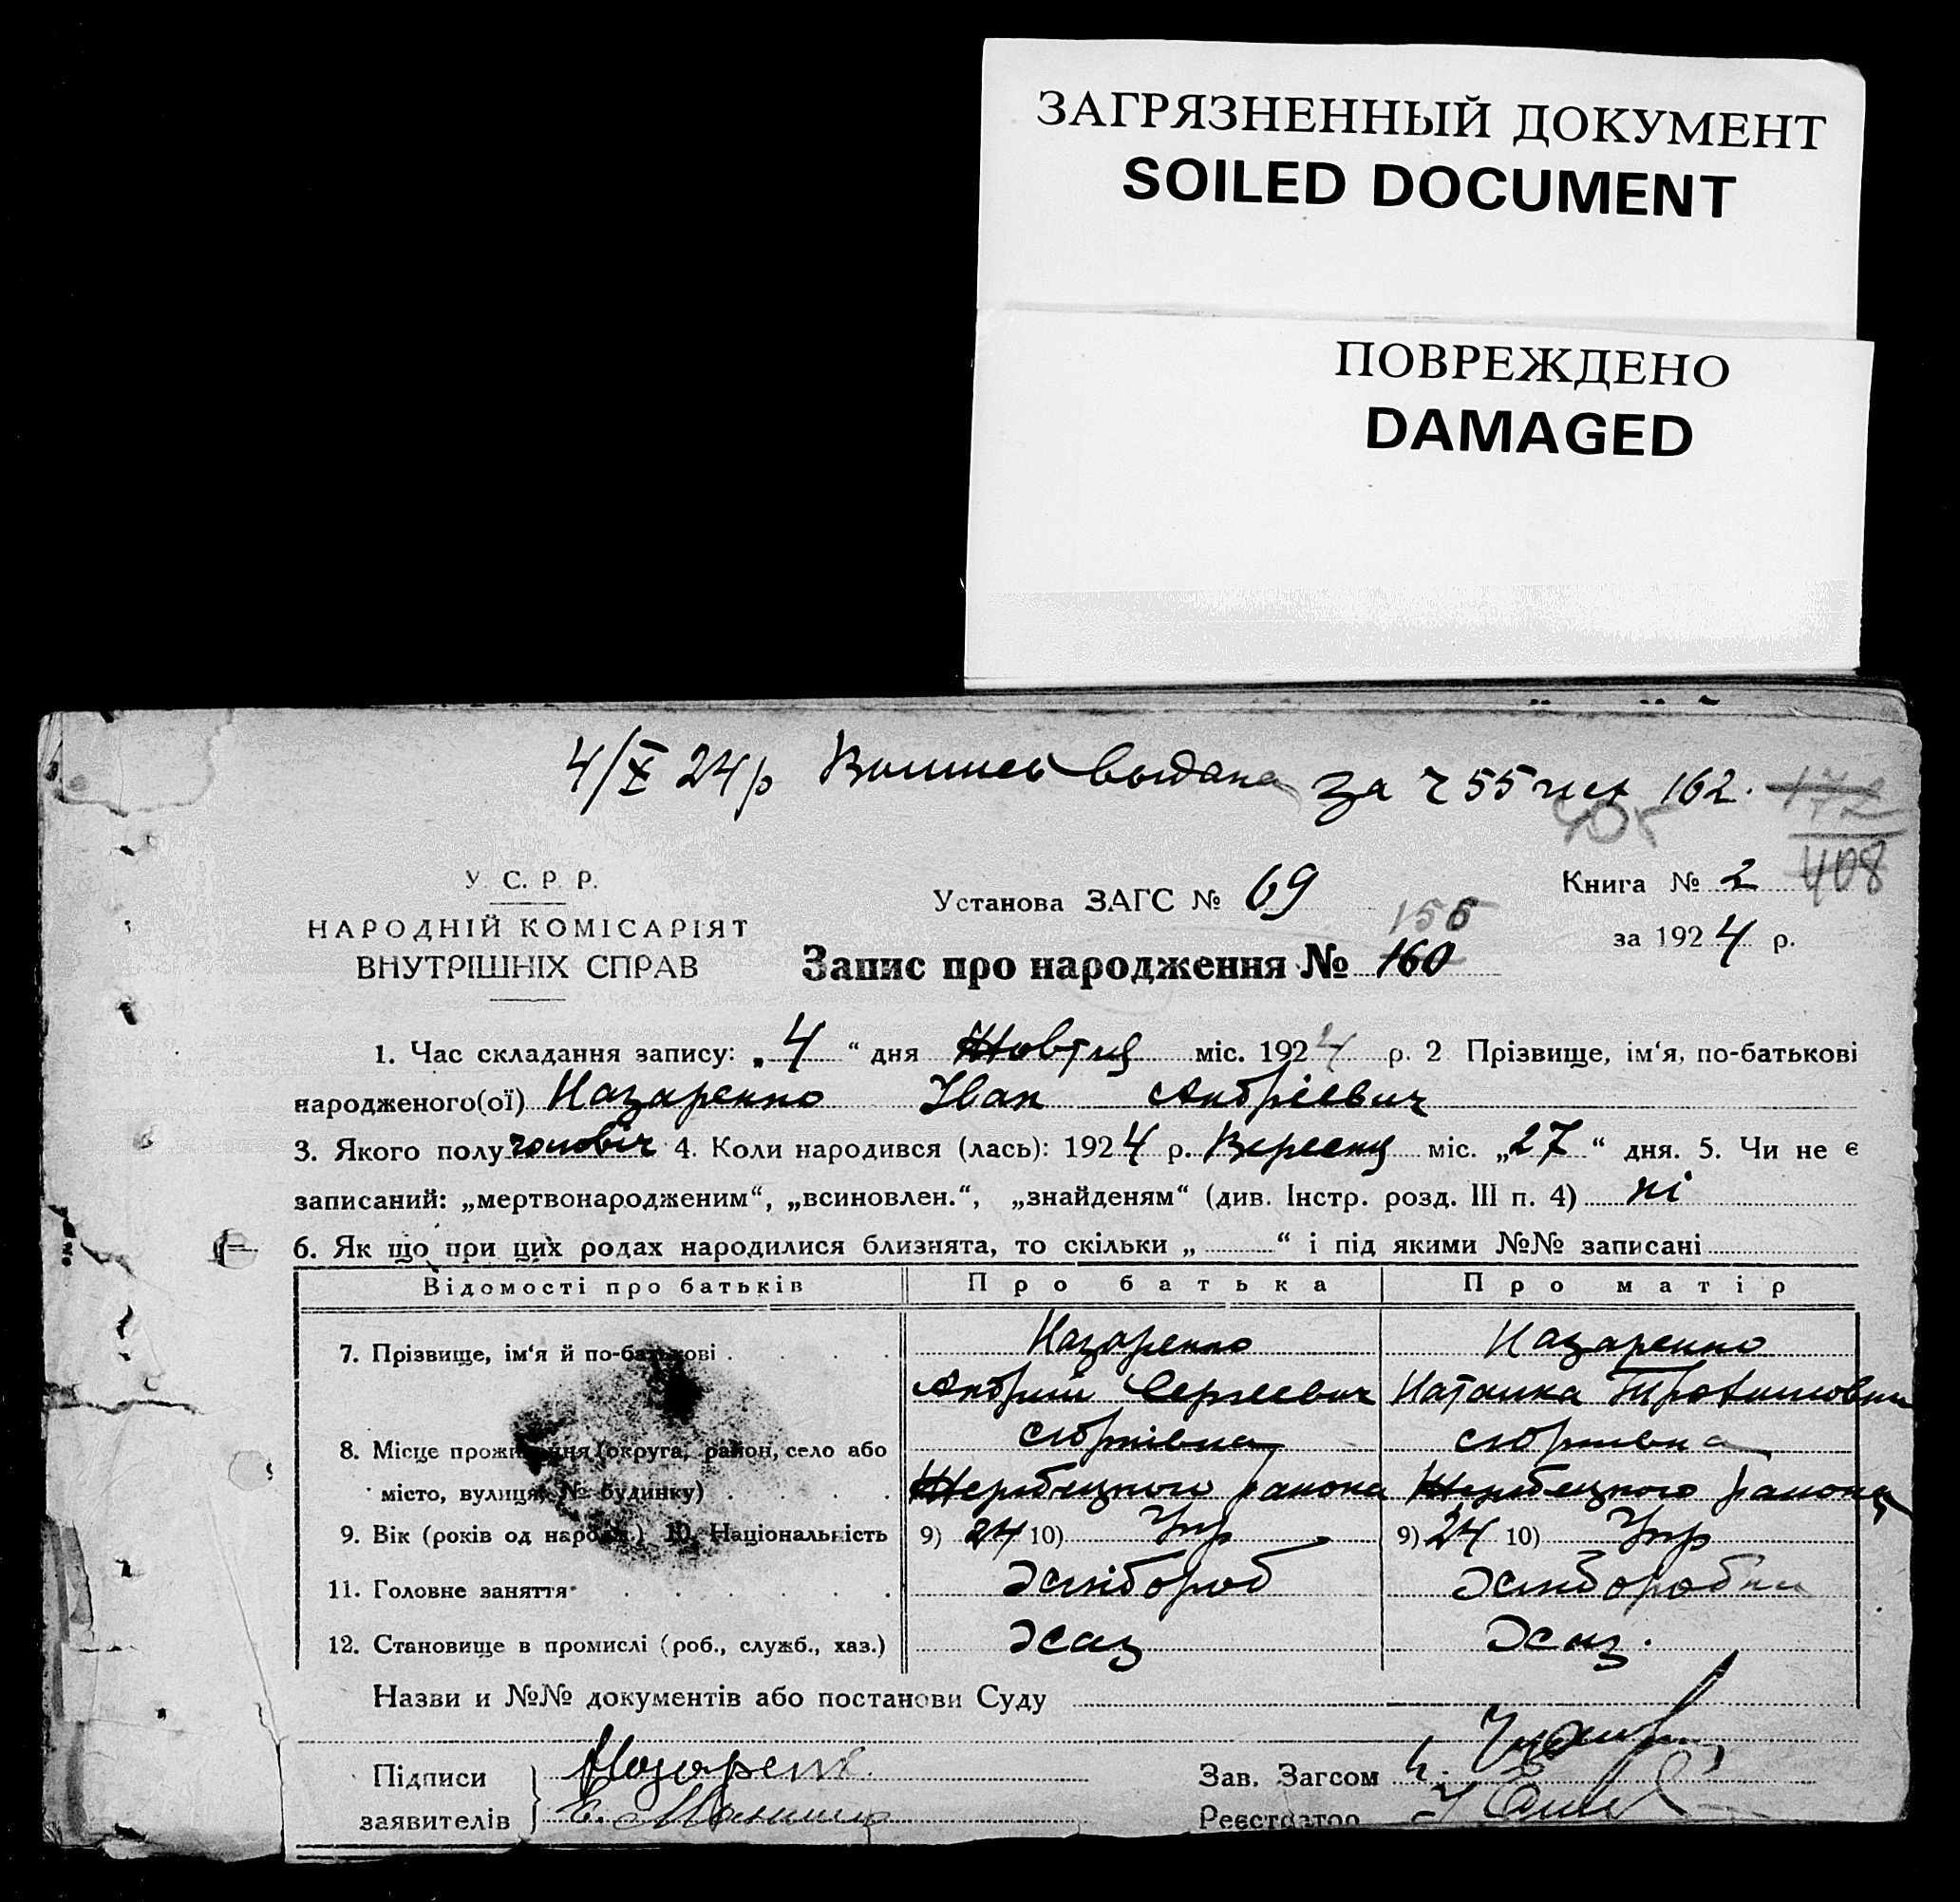 ЗАГРЯЗНЕННЫЙ ДОКУМЕНТ
SOILED DOCUMENT
ПОВРЕЖДЕНО
DAMAGED
4/X 24р выдана за 55 162. 172
408
У. С. Р. Р.
Установа ЗАГС № 69
Книга № 2
НАРОДНІЙ КОМІСАРІЯТ
ВНУТРІШНІХ СПРАВ
за 1924 р.
155
Запис про народження № 160
1. Час складання запису: „ 4 “ дня Жовтня міс. 1924 р. 2 Прізвище, ім‘я, по-батькові
народженого(ої) Назаренко Іван Андріевич
3. Якого полу чоловіч 4. Коли народився (лась): 1924 р. Вересня міс. „27“ дня. 5. Чи не є
записаний: „мертвонародженим“, „всиновлен.“, „знайденям“ (див. Інстр. розд. III п. 4) ні
6. Як що при цих родах народилися близнята, то скільки „ “ і під якими №№ записані
Відомості про батьків Про батька Про матір
7. Прізвище, ім‘я й по-батькові Назаренко Назаренко
Андрий Сергіевич Наталка
8. Місце проживання (округа, район, село або
місто, вулиця, № будинку) Жеребецкого района Жеребецкого района
9. Вік (років од народж.) 10. Національність 9) 24 10) Укр 9) 24 10) Укр
11. Головне заняття Хлібороб Хлібороб
12. Становище в промислі (роб., служб., хаз.) Хаз Хаз.
Назви и №№ документів або постанови Суду
Підписи Назаренк
Зав. Загсом
заявителів
Реєстратор